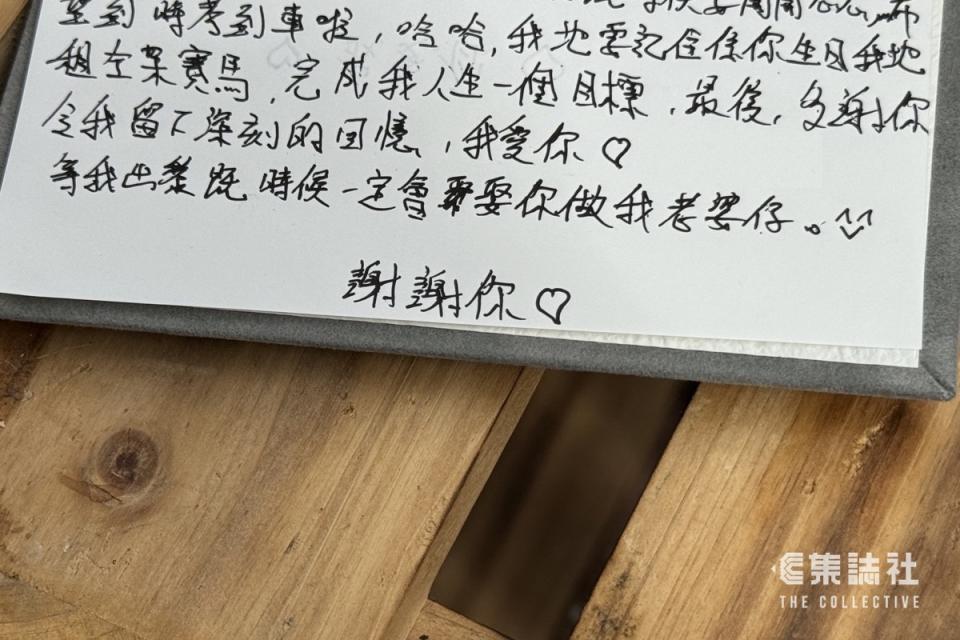 時候要開開心心,希
望到時考到車啦,哈哈,我地要記住佢你生日我地
租左架賽馬,完成我人生一個目標,最後,多謝你
令我留下深刻的回憶,我愛你♡
等我出黎既時候一定會娶你做我老婆仔。^^
謝謝你♡
集誌社
THE COLLECTIVE